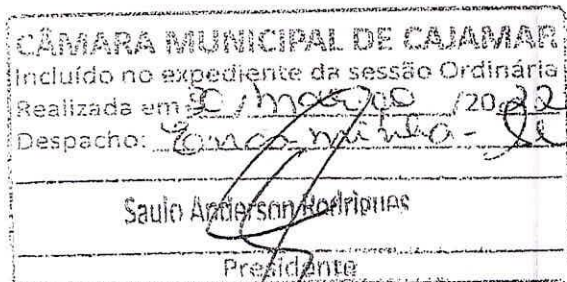 CÂMARA MUNICIPAL DE CAJAMAR
Incluído no expediente da sessão Ordinária
Realizada em / março /2022
Despacho: Encaminha-se
Saulo Anderson Rodrigues
Presidente